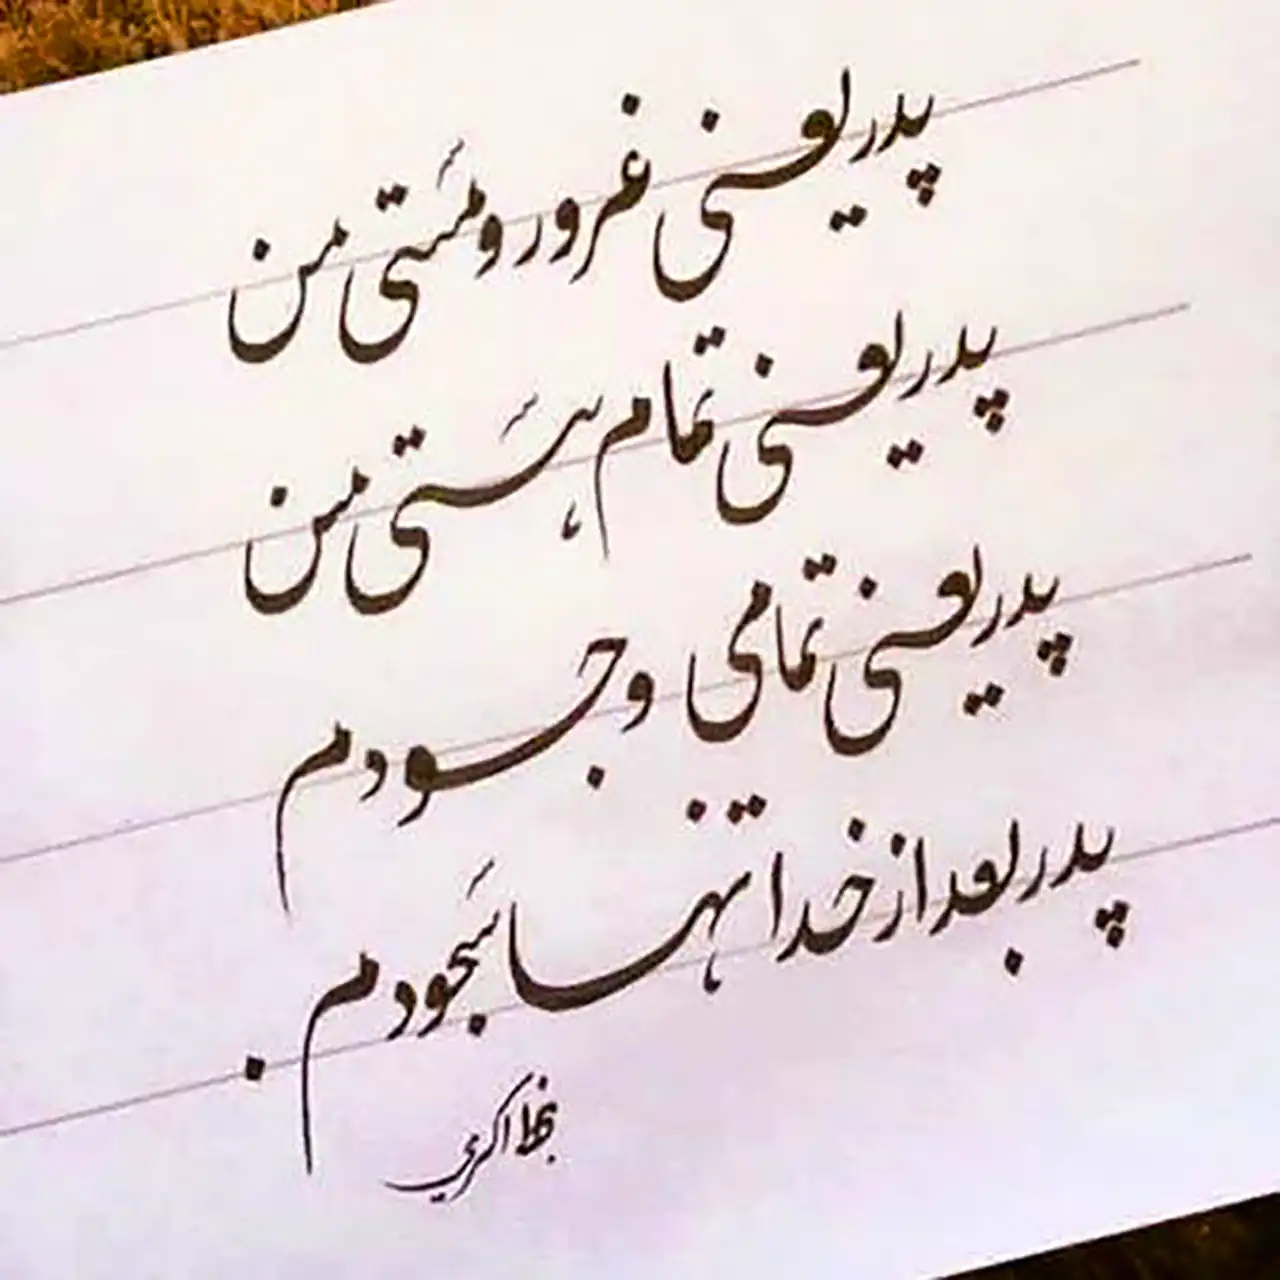 پدر یعنی غرور و مستی من
پدر یعنی تمام هستی من
پدر یعنی تمامی وجودم
پدر بعد از خدا تنها سجودم.
اکبری